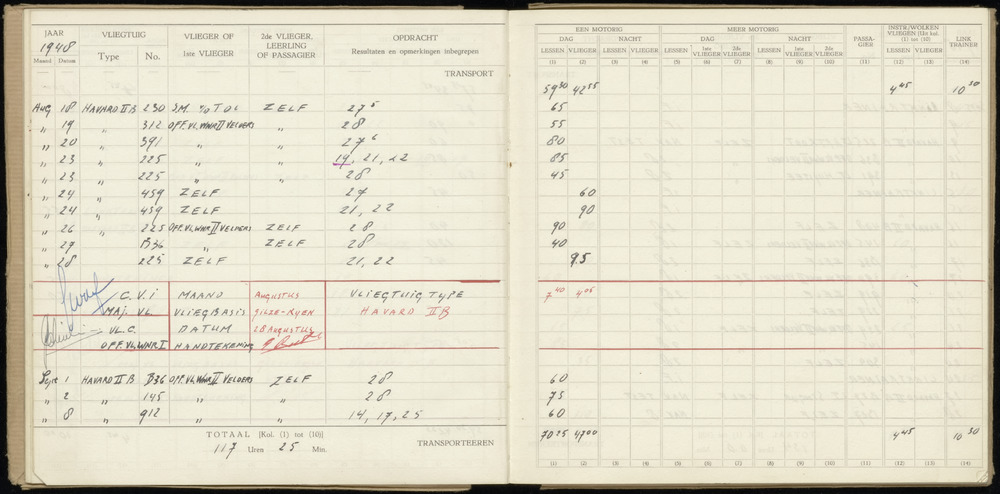 JAAR VLIEGTUIG VLIEGER OF 1ste VLIEGER 2de VLIEGER, LEERLING OF PASSAGIER OPDRACHT Resultaten en opmerkingen inbegrepen
1948
Maand Datum Type No.
TRANSPORT
Aug 18 HAVARD II B 230 S.M. ZELF 27
" 19 " 312 OFF.VL.WNR II VELDERS " 28
" 20 " 391 " " 27
" 23 " 225 " " 19, 21, 22
" 23 " 225 " " 28
" 24 " 459 ZELF 27
" 24 " 459 ZELF 21, 22
" 26 " 225 OFF.VL.WNR II VELDERS ZELF 28
" 27 B36 " ZELF 28
" 28 225 ZELF 21, 22
C.V.I MAAND AUGUSTUS VLIEGTUIG TYPE
MAJ. VL. VLIEGBASIS GILZE-RYEN HAVARD II B
VL.C. DATUM 28 AUGUSTUS
OFF.VL.WNR I HANDTEKENING
Sept 1 HAVARD II B B36 OFF.VL.WNR II VELDERS ZELF 28
" 2 " 145 " " 28
" 8 " 912 " " 14, 17, 25
TOTAAL [Kol. (1) tot (10)] TRANSPORTEEREN
117 Uren 25 Min.
EEN MOTORIG MEER MOTORIG PASSA-GIER INSTR/WOLKEN VLIEGEN [Uit kol. (1) tot (10) LINK TRAINER
DAG NACHT DAG NACHT
LESSEN VLIEGER LESSEN VLIEGER LESSEN 1ste VLIEGER 2de VLIEGER LESSEN 1ste VLIEGER 2de VLIEGER LESSEN VLIEGER
(1) (2) (3) (4) (5) (6) (7) (8) (9) (10) (11) (12) (13) (14)
59 30 42 55 4 45 10 30
65
55
80
85
45
60
90
90
40
95
7 40 4 05
60
75
60
70 25 47 00 4 45 10 30
(1) (2) (3) (4) (5) (6) (7) (8) (9) (10) (11) (12) (13) (14)